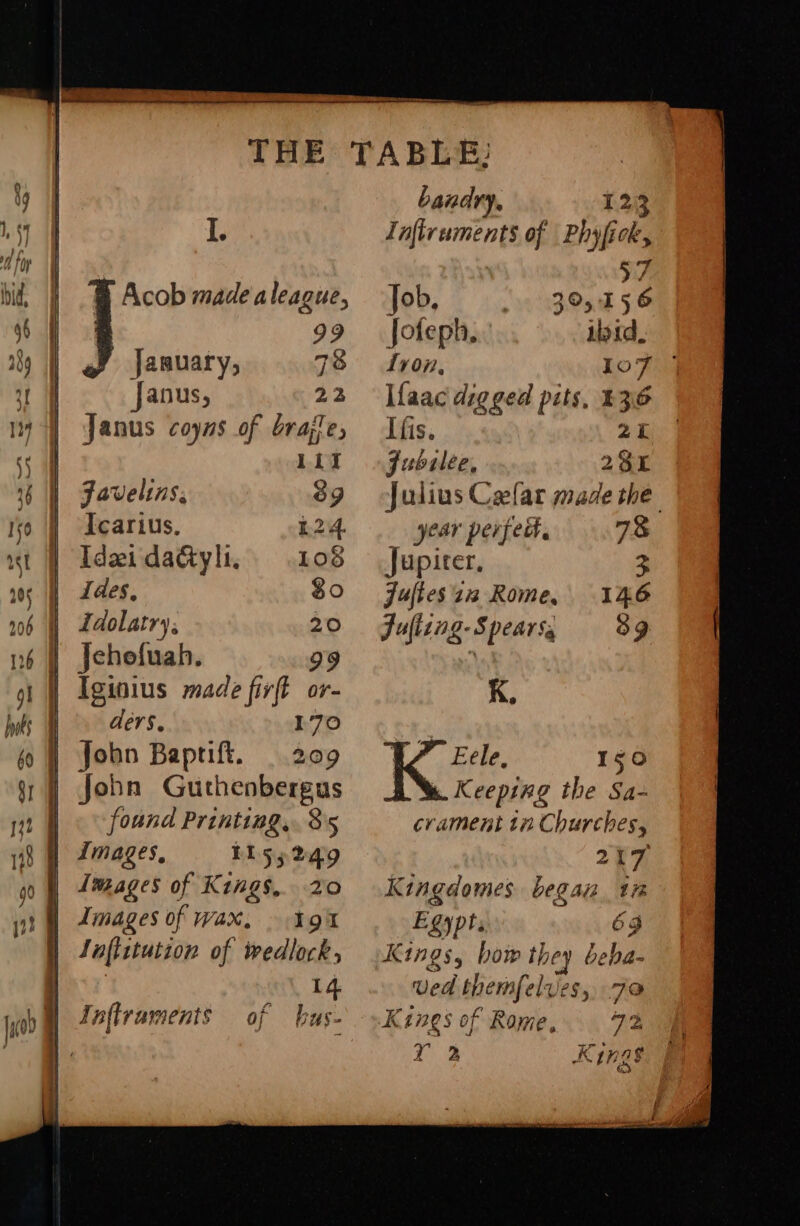 89
1, 57
d for
ibid,
96
289
31
55
36
150
205
206
126
91
60
132
90
Jacob
THE TABLE;
I.
JAcob made a league,
99
January, 78
Janus, 22
Janus coyns of braſſe,
111
Javelins, 89
Icarius. 124
Idæi dactyli, 108
Ides, 80
Idolatry, 20
Jehoſuah. 99
Iginius made firſt or-
ders. 170
John Baptiſt. 209
John Guthenbergus
found Printing, 85
Images, 115, 249
Images of Kings, 20
Images of wax, 191
Inſtitution of wedlock,
14
Inſtruments of hus-
bandry, 123
Inſtruments of Phyſick,
57
Job, 30, 156
Joſeph, ibid.
Iron, 107
Iſaac digged pits, 136
Iſis. 21
Jubilee, 281
Julius Cæſar made the
year perfect, 78
Jupiter, 3
Juſtes in Rome, 146
Juſting-Spears, 89
K.
KEele, 150
Keeping the Sa-
crament in Churches,
217
Kingdomes began in
Egypt, 69
Kings, how they beha-
ved themſelves, 70
Kings of Rome, 72
Y 2 Kings